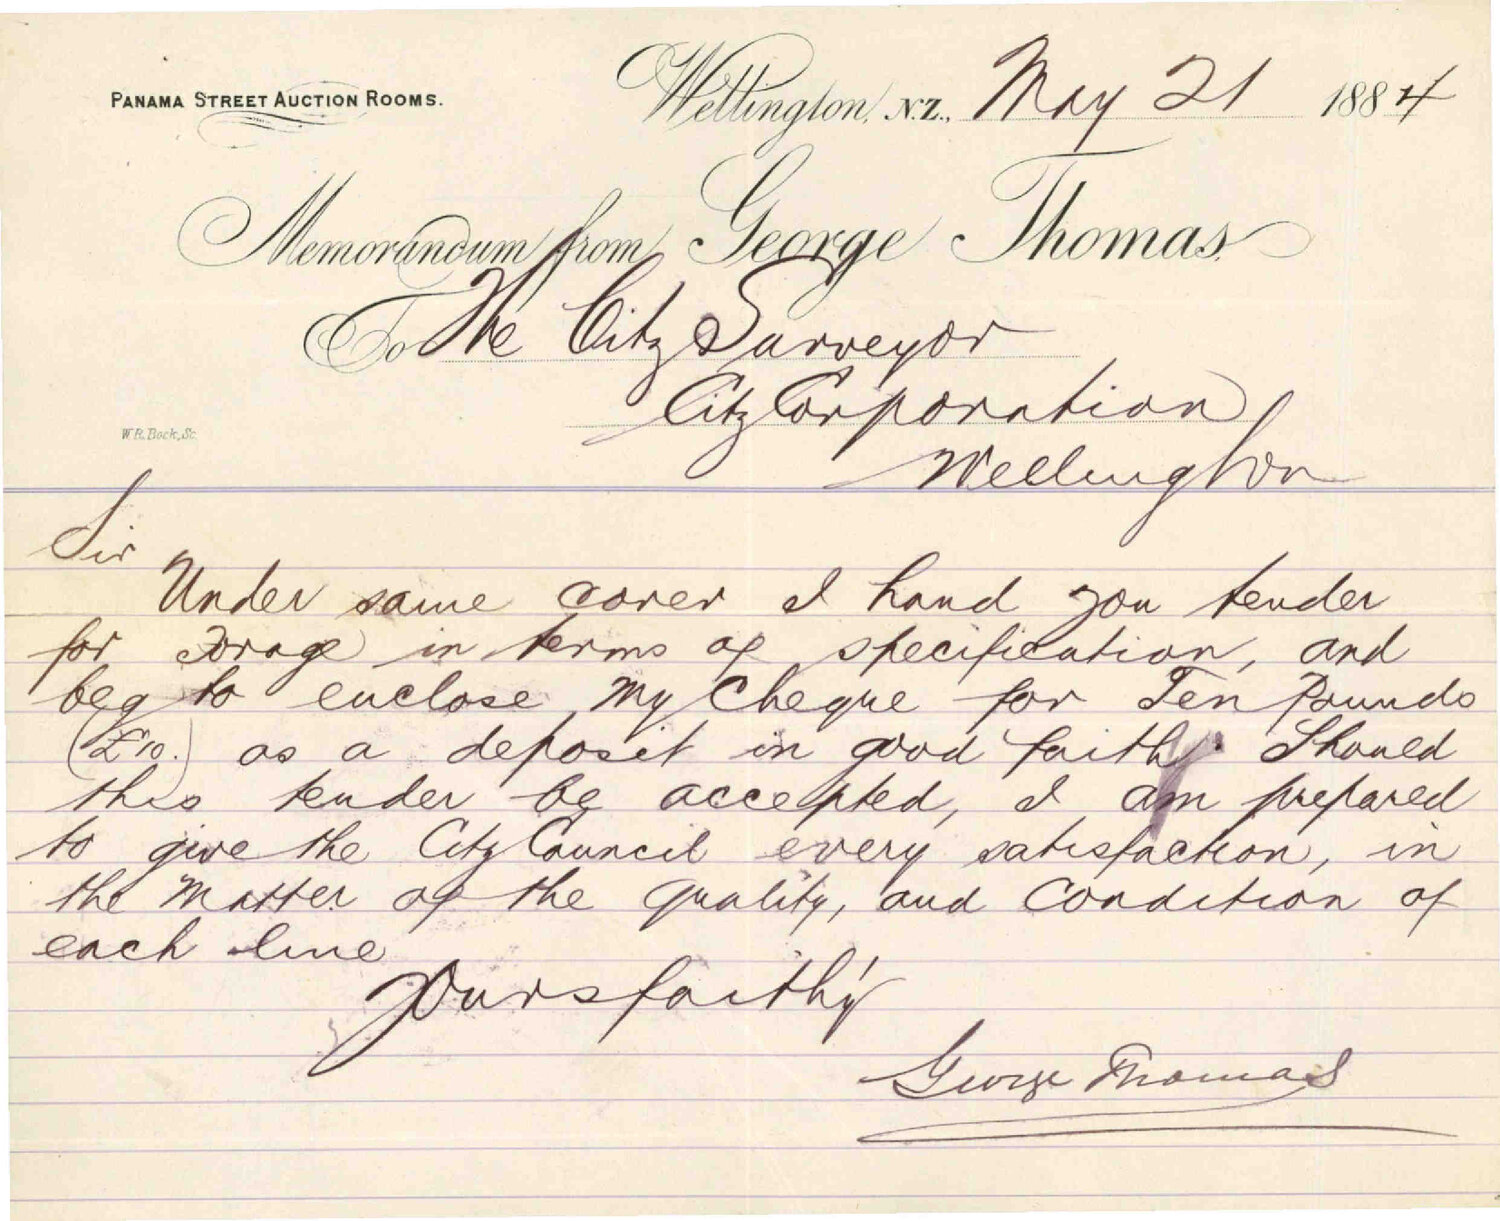 PANAMA STREET AUCTION ROOMS.
Wellington, N.Z., May 21 1884
Memorandum from George Thomas.
To The City Surveyor
City Corporation
W.R. Bock, Sc.
Wellington
Sir
Under same cover I hand you tender
for Forage in terms of specification, and
beg to enclose My Cheque for Ten Pounds
(£10.) as a deposit in good faith. Should
this tender be accepted, I am prepared
to give the City Council every satisfaction, in
the Matter of the quality, and Condition of
each line
Yours faith'y
George Thomas